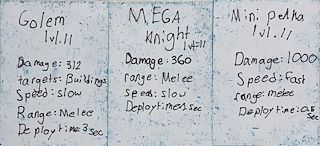 Golem
lvl.11
Damage: 312
targets: Buildings
Speed: slow
Range: Melee
Deploy time: 3 sec
MEGA
Knight
lvl=11
Damage: 360
range: Melee
speed: slow
Deploy time: 1 sec
Mini pekka
lvl.11
Damage: 1000
Speed: fast
range: melee
Deploy time: 0.5
sec